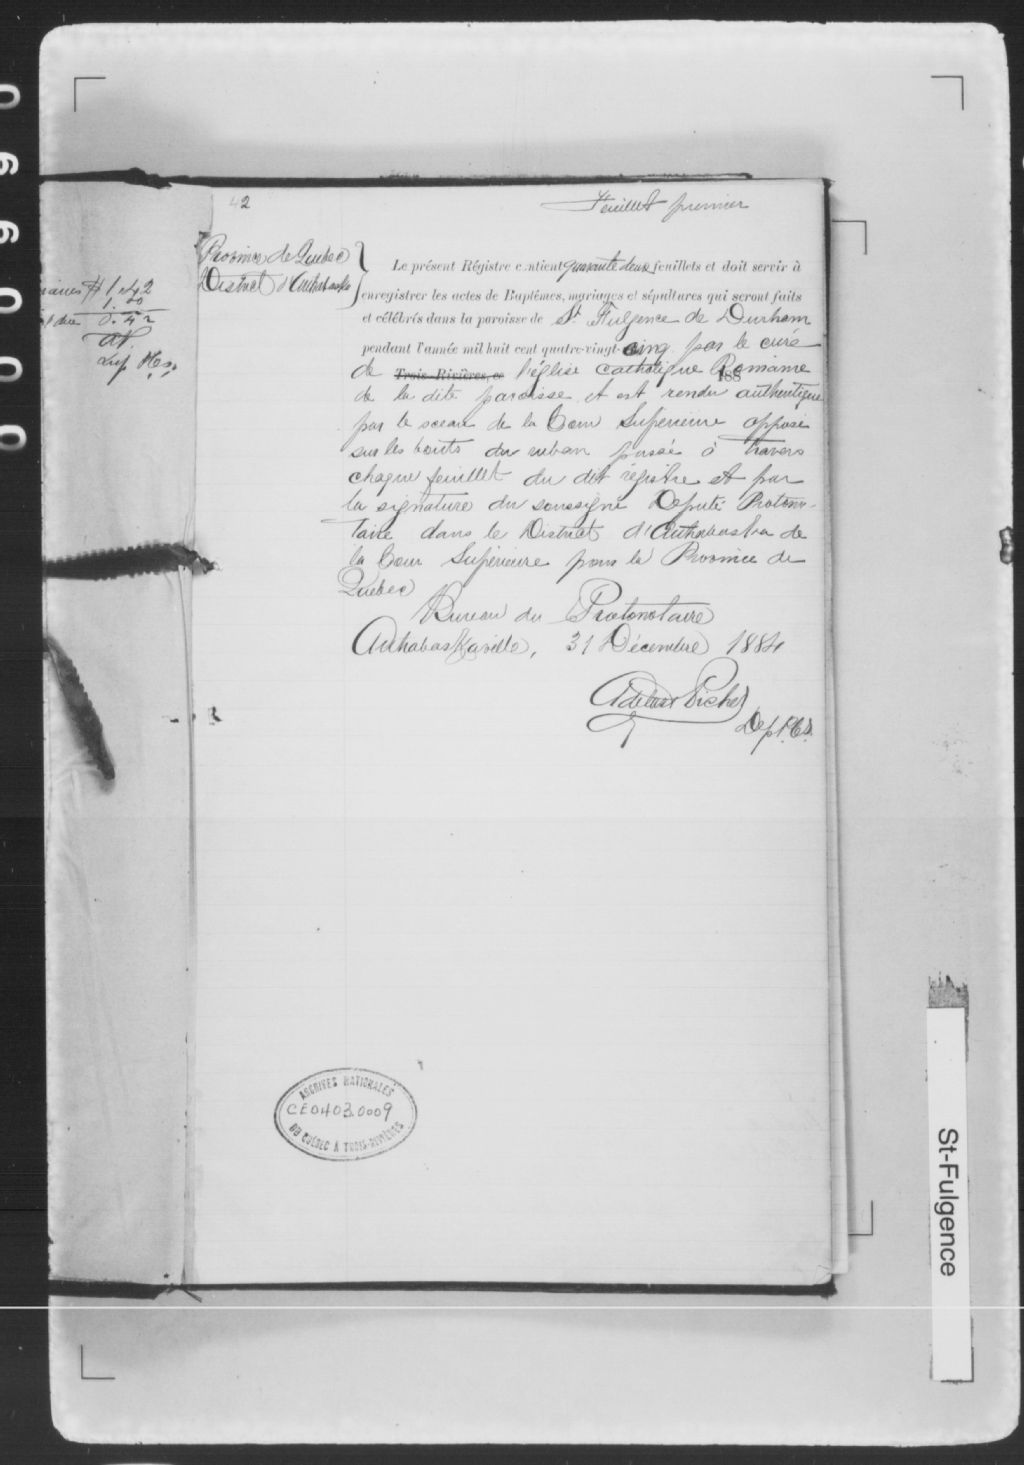 000990
42
Feuillet premier
Province de Québec
District d'Arthabaska
Le présent Régistre contient quarante deux feuillets et doit servir à
enregistrer les actes de Baptêmes, mariages et sépultures qui seront faits
et célébrés dans la paroisse de St Fulgence de Durham
pendant l'année mil huit cent quatre-vingt-cinq par le curé
de Trois-Rivières, ce l'église catholique Romaine
188
de la dite paroisse et est rendu authentique
par le sceau de la Cour Supérieure apposé
sur les bouts du ruban passé à travers
chaque feuillet du dit régistre et par
la signature du soussigné Député Protono-
taire dans le District d'Arthabaska de
la Cour Supérieure pour la Province de
Québec
Bureau du Protonotaire
Arthabaskaville, 31 Décembre 1884
Adelard Picher
Dep. P.C.S.
$1.42
1.00
0.42
ARCHIVES NATIONALES
CE0403.0009
DU QUÉBEC À TROIS-RIVIÈRES
St-Fulgence